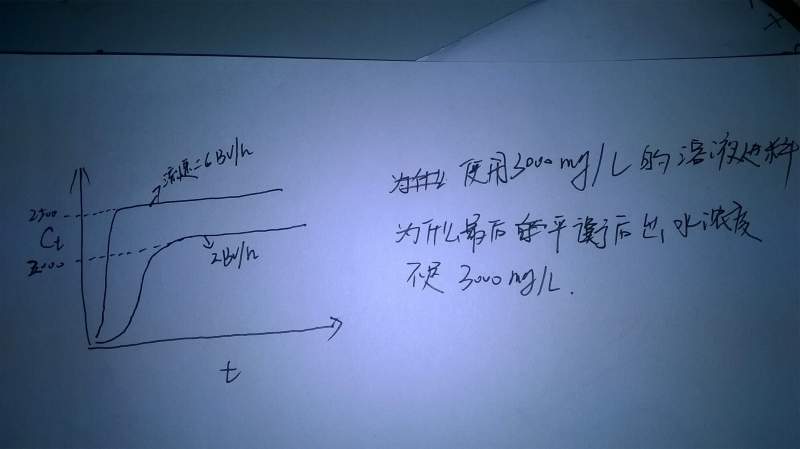 流速=6BV/h
2500
Ct
2000
2BV/h
t
使用3000mg/L的溶液进料
为什么最后的平衡后出水浓度
不是3000mg/L.